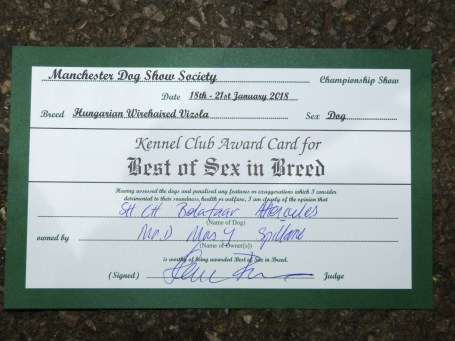 Manchester Dog Show Society Championship Show
Date 18th - 21st January 2018
Breed Hungarian Wirehaired Vizsla Sex Dog
Kennel Club Award Card for
Best of Sex in Breed
Having assessed the dogs and penalised any features or exaggerations which I consider
detrimental to their soundness, health or welfare, I am clearly of the opinion that
SH CH Belataar
(Name of Dog)
owned by Mr D Mrs Y Spillane
(Name of Owner(s))
is worthy of being awarded Best of Sex in Breed.
(Signed) Judge